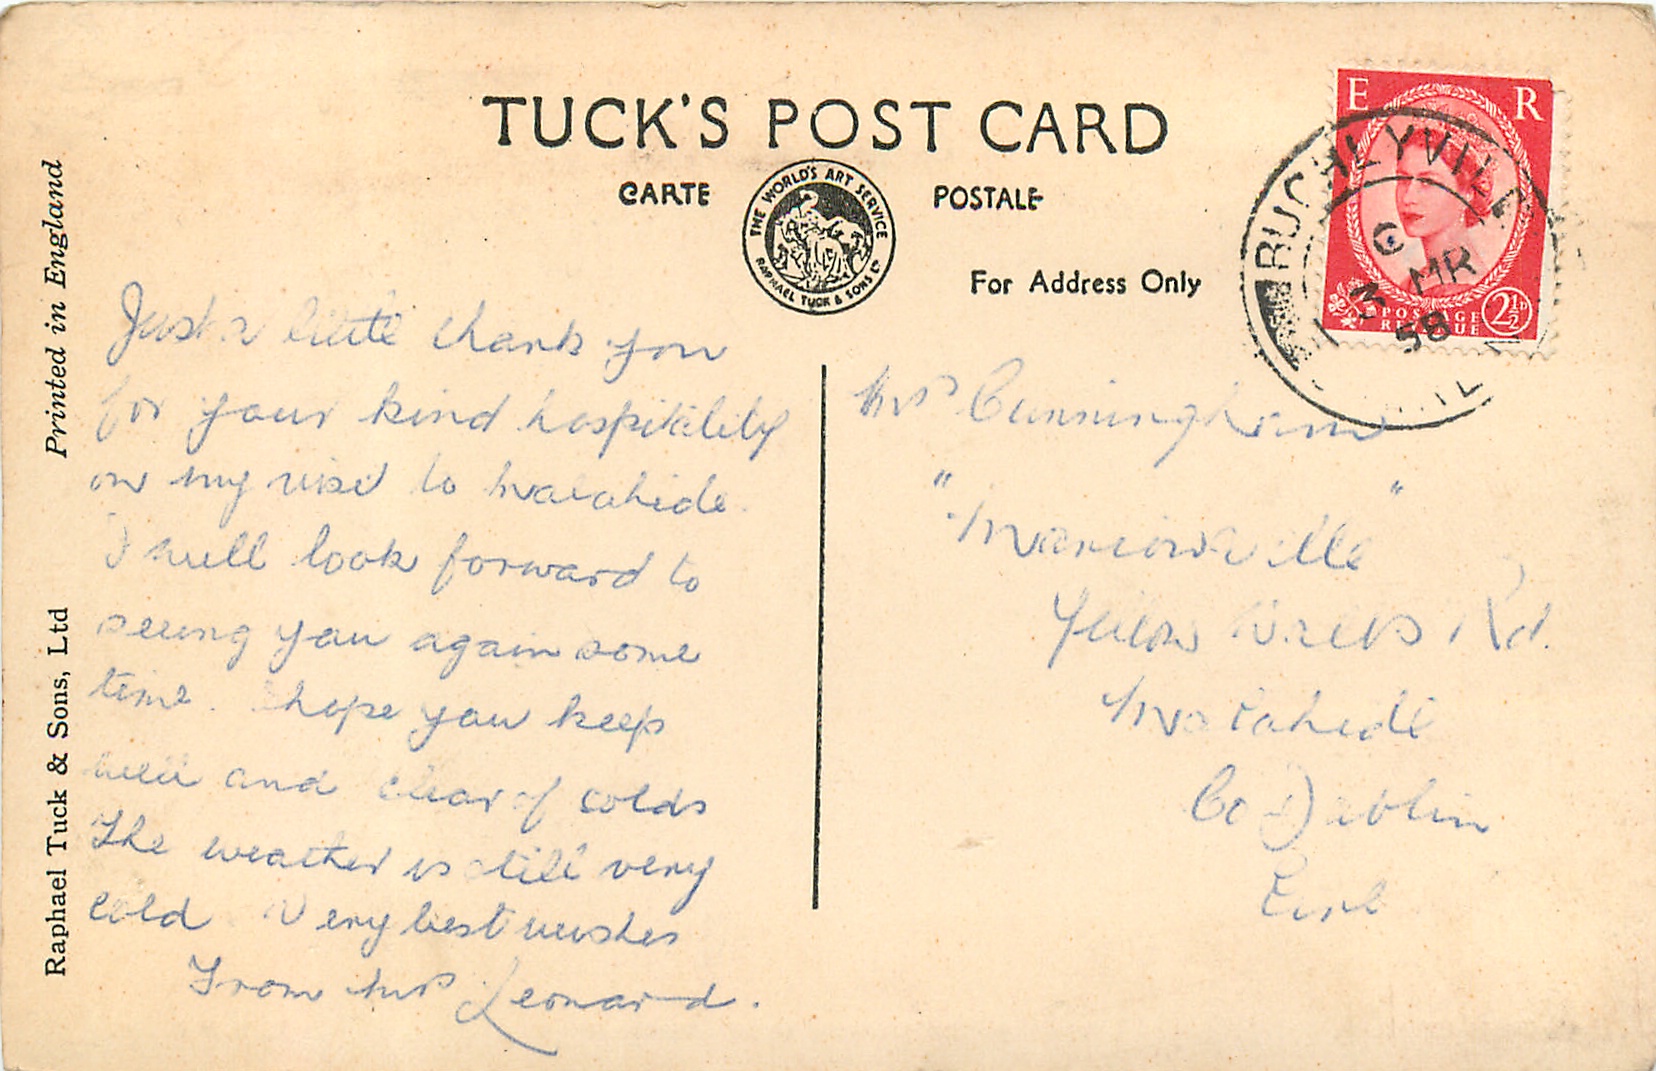 TUCK'S POST CARD
CARTE POSTALE
THE WORLD'S ART SERVICE
RAPHAEL TUCK & SONS LTD
For Address Only
Printed in England
Raphael Tuck & Sons, Ltd
E R
POSTAGE
REVENUE
2½D
BUCHLYVIE
6 MR
58
Just a little thank you
for your kind hospitality
on my visit to Malahide.
I will look forward to
seeing you again some
time. I hope you keep
well and clear of colds
The weather is still very
cold Very best wishes
From Mrs Leonard.
Mrs Cunningham
"Marionville"
Yellow Walls Rd.
Malahide
Co Dublin
Eire